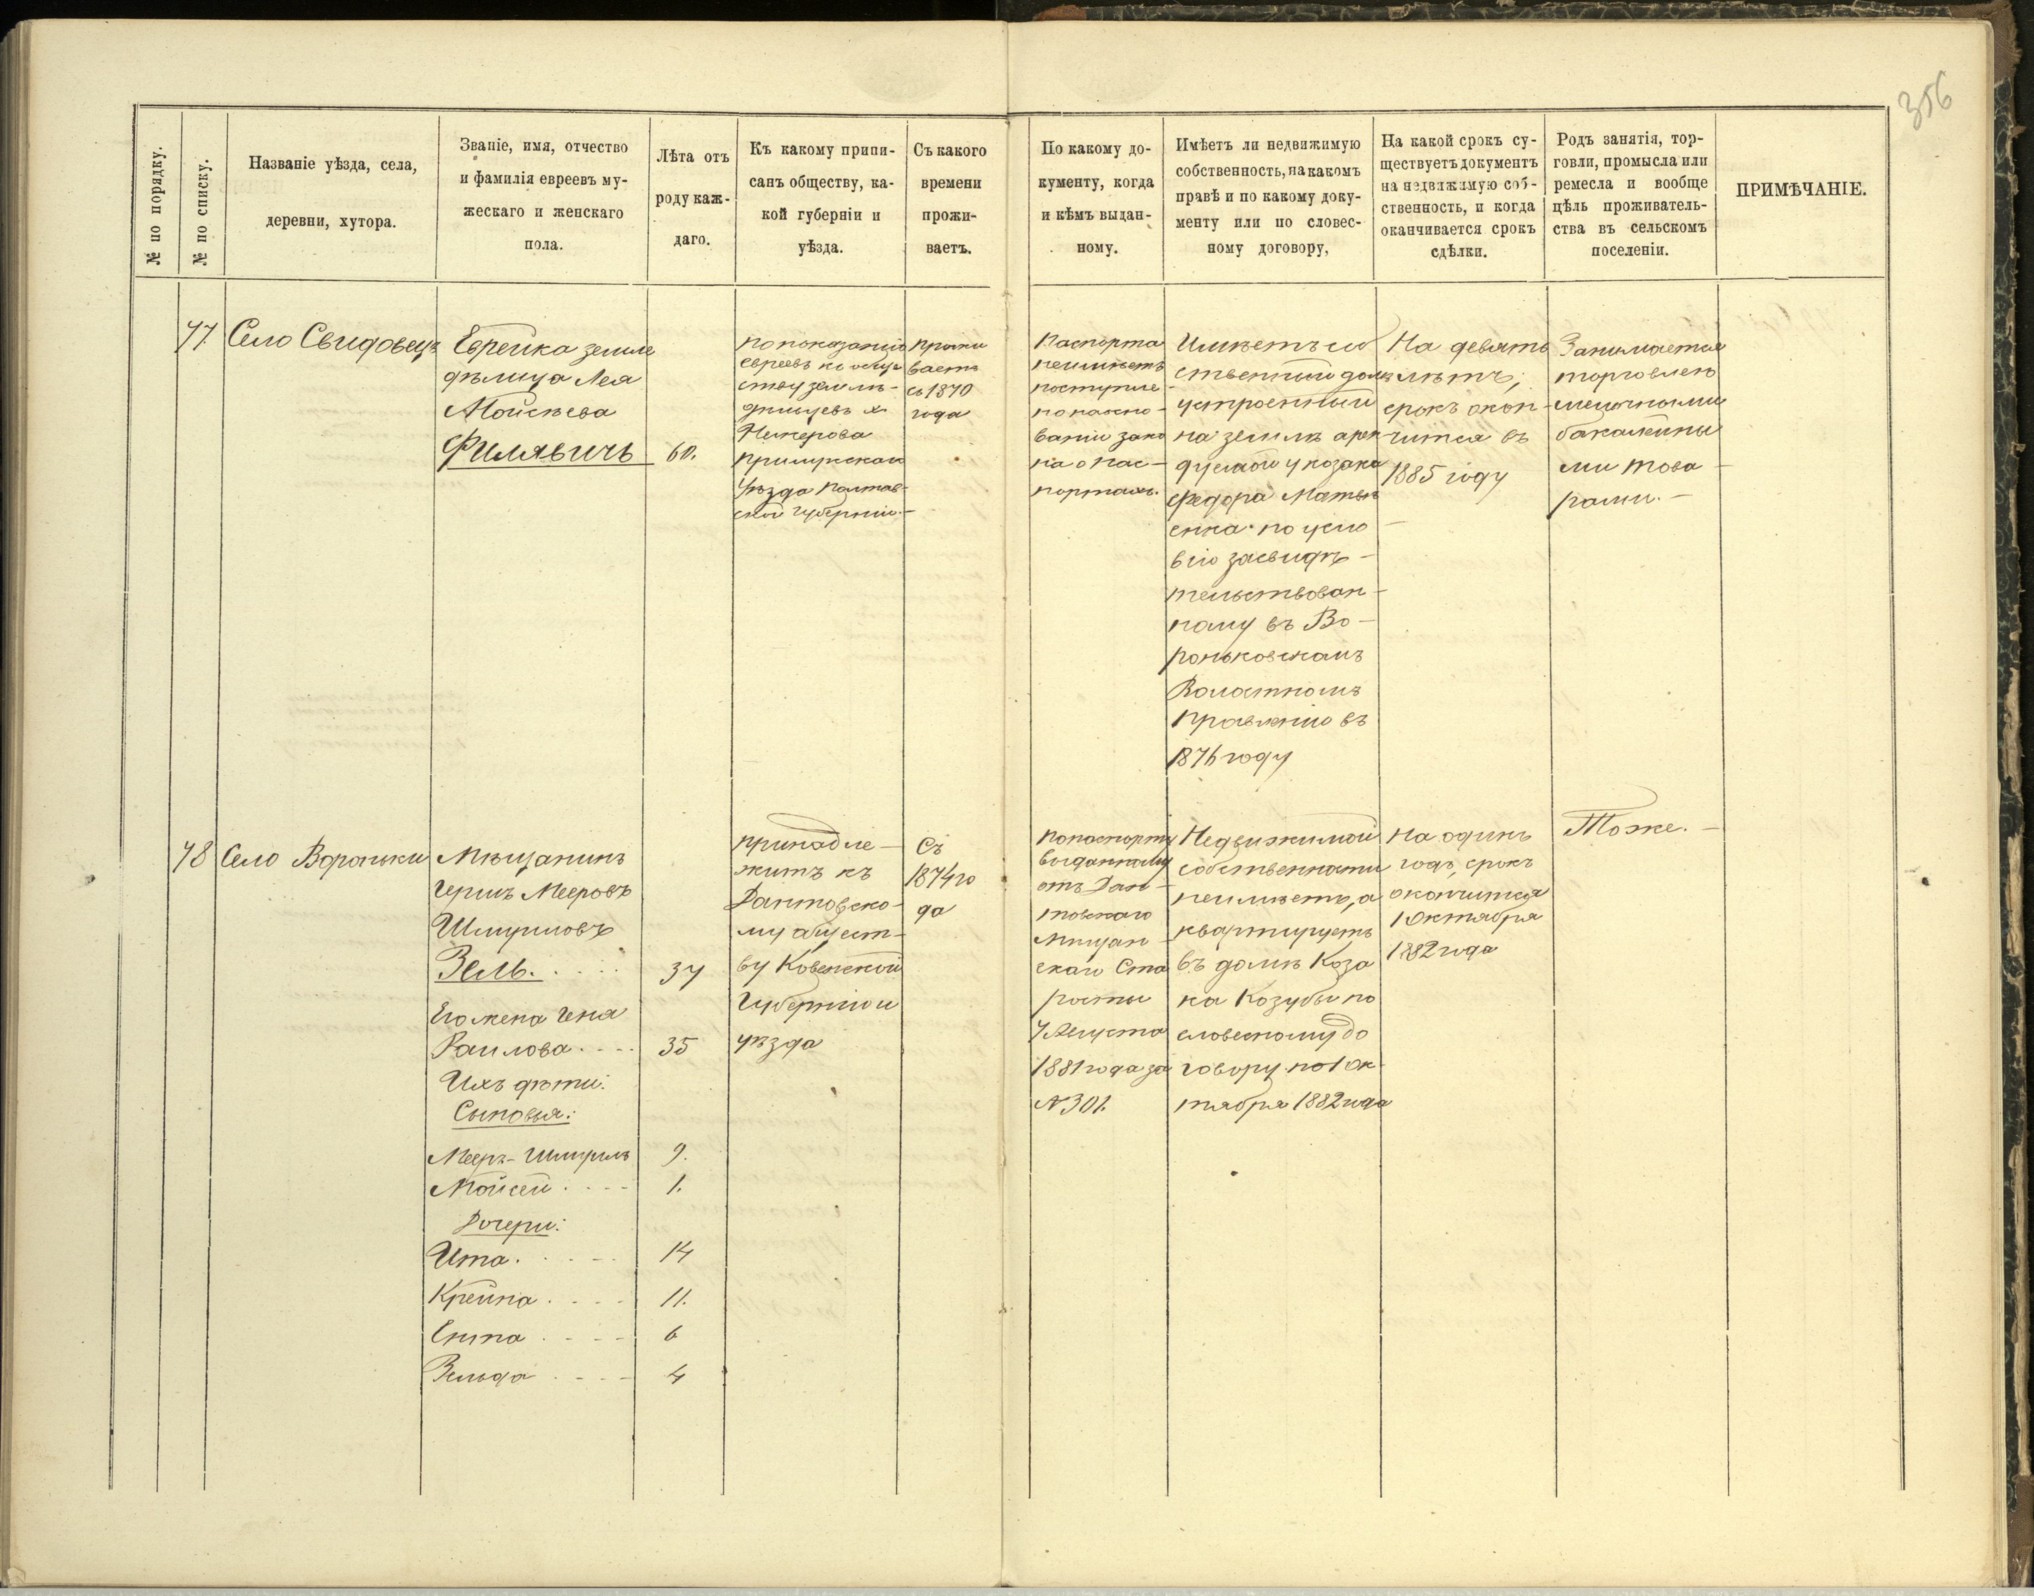 356
№ по порядку.
№ по списку.
Названіе уѣзда, села,
деревни, хутора.
Званіе, имя, отчество
и фамилія евреевъ му-
жескаго и женскаго
пола.
Лѣта отъ
роду каж-
даго.
Къ какому припи-
санъ обществу, ка-
кой губерніи и
уѣзда.
Съ какого
времени
прожи-
ваетъ.
По какому до-
кументу, когда
и кѣмъ выдан-
ному.
Имѣетъ ли недвижимую
собственность, на какомъ
правѣ и по какому доку-
менту или по словес-
ному договору,
На какой срокъ су-
ществуетъ документъ
на недвижимую соб-
ственность, и когда
оканчивается срокъ
сдѣлки.
Родъ занятія, тор-
говли, промысла или
ремесла и вообще
цѣль проживатель-
ства въ сельскомъ
поселеніи.
ПРИМѢЧАНІЕ.
77
Село Свидовецъ
Еврейка земле
дѣлица Лея
Мойсѣева
Филявичъ
60.
по показанію
евреевъ къ обще
ству землѣ-
дѣльцевъ х.
Прилукскаго
уѣзда Полтав-
ской губерніи.-
прожи
ваетъ
съ 1870
года
Паспорта
неимѣетъ
ваніи зако
на о пас-
портахъ.
Имѣетъ соб
ственный домъ
устроенный
на землѣ арен
дуемой у козака
Федора Матвѣ
енка по усло
вію засвидѣ-
тельствован-
ному въ Во-
роньковскомъ
Волостномъ
Правленіи въ
1876 году
На девять
лѣтъ;
срокъ окон-
чится въ
1885 году
Занимается
торговлею
мелочными
бакалейны
ми това-
рами.-
78
Село Вороньки
Мѣщанинъ
Гершъ Мееровъ
Шмуиловъ
Зель.
37
Его жена Геня
Раилова
35
Ихъ дѣти:
Сыновья:
Мееръ-Шмуилъ
9.
Мойсей
1.
Дочери:
Ита
14
Крейна
11.
Ента
6
Зельда
4
принадле-
житъ къ
му общест-
ву Ковенской
Губерніи и
уѣзда
Съ
1874 го
да
По паспорту
выданному
Мѣщан-
скаго Ста
росты
7 Августа
1881 года за
№ 301.
Недвижимой
собственности
неимѣетъ, а
квартируетъ
въ домѣ Коза
ка Козубы по
словесному до
говору по 1 Ок-
тября 1882 года
на одинъ
годъ, срокъ
окончится
1 Октября
1882 года
Тоже.-